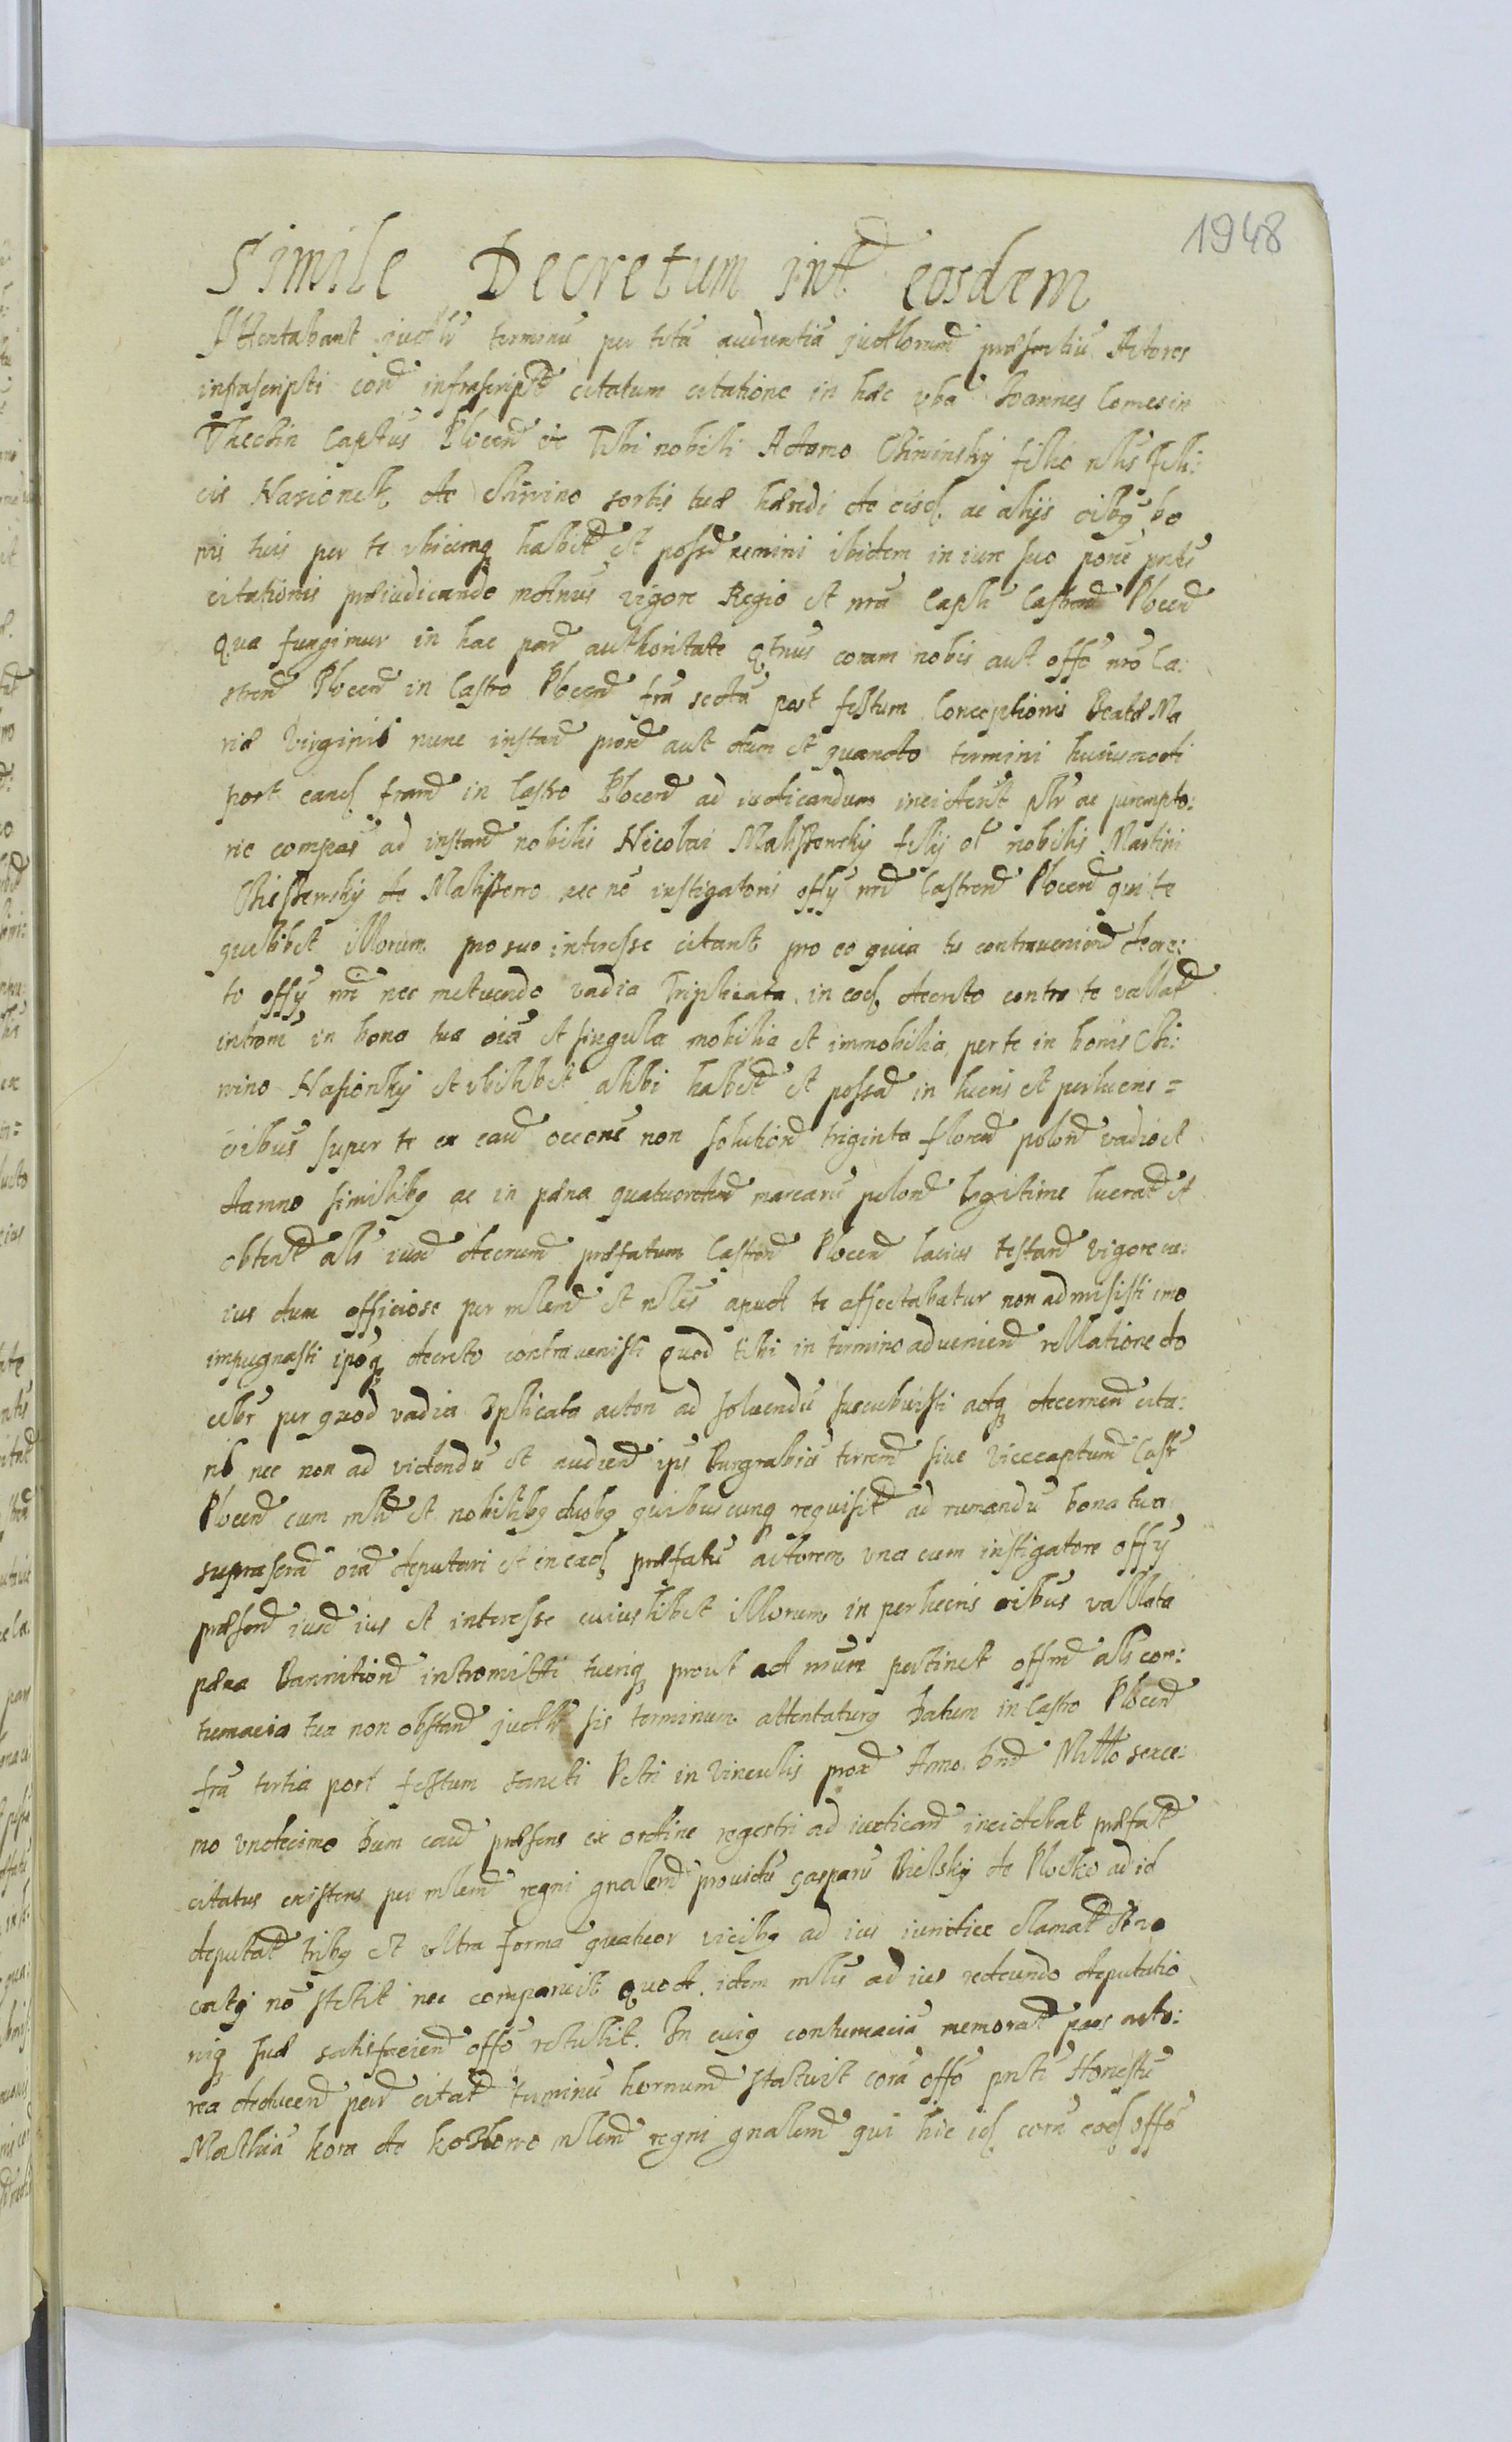 1948
Simile Decretum int eosdem
Attentabant judlr terminu per totâ audientiâ judlorum præsentiû Actores
infrascripti cond infrascript citatum citatione in hæc vba Joannes Comes in
Thechin Captus Plocen etc Tibi nobili Adamo Chininsky filio nlis Feli:
cis Nasionck de Chinino sortis tuæ hæredi de eisd ac alijs oibq bo
nis tuis per te vbicunq habit et possr nemini ibidem in iure suo pone pntis
citationis præiudicando mdmus vigore Regio et nra Captli Castren Plocen
qua fungimur in hac parte authoritate qtnus coram nobis aut offo nro Ca:
stren Plocen in Castro Plocen fria sexta post festum Conceptionis Beatæ Ma
riæ Virginis nunc instan prox aut dum et quando termini huiusmodi
post eand friam in Castro Plocen ad iudicandum inciderit plr ac perempto:
rie compas ad instan nobilis Nicolai Malissewsky filij ol nobilis Martini
de Malissewo nec nô instigatoris offy nri Castren Plocen qui te
quilibet illorum pro suo interesse citant pro eo quia tu contravenien decre:
to offy nri nec metuendo vadia Triplicata in eod decreto contra te vallat
introm in bona tua oia et singula mobilia et immobilia per te in bonis Chi:
nino Nasionsky et vbilibet alibi habit et possa in lucris et perlucris =
oibus super te ex caus occone non solution triginta floren polon vadio et
damno similibq ac in pæna quatuordecim marcaru polon legitime lucrat et
obtent als iuxt decrum præfatum Castren Plocen lacius testan vigore cu:
ius dum officiose per mlem et nlis apud te affectabatur non admisisti imo
impugnasti ipoq decreto contravenisti quod tibi in termino advenien rellatione do
cebr per quod vadia 3plicata actori ad solvendû succubuisti adq decernen cita:
ris nec non ad videndû et audien ips Burgrabiû terren siue Vicecaptum Castr
Plocen cum mli et nobilibq duobq quibuscunq requisit ad rumandû bona tua
suprascra oia deputari et in ead præfatû actorem vna cum instigatore offy
præsen iuxt ius et interesse cuiuslibet illorum in perlucris oibus vallata
pæna Bannition intromitti tueriq prout ad nrum pertinet offm als con:
tumacia tua non obstan judlr sis terminum attentaturq Datum in Castro Plocen
fria tertia post festum Sancti Petri in Vinculis prox Anno Dni Millo sexce:
mo vndecimo Dum caus præsens ex ordine regestri ad iudican incidebat præfat
citatus existens per mlem regni gnalem providû Gasparû Bielsky de Plocko ad id
deputat tribq et vltra forma quatuor vicibq ad ius iuridice clamat et vo
catq nô stetit nec comparuit quod idem mlis ad ius redeundo deputatio
niq suæ satisfacien offo retulit. In cuiq contumaciâ memorat pars acto:
rea deducen citat terminû hornum statuit corâ offo pnti Honestû
Mathiâ kora de kozlowo mlem regni gnalem qui hic id corâ eod offo